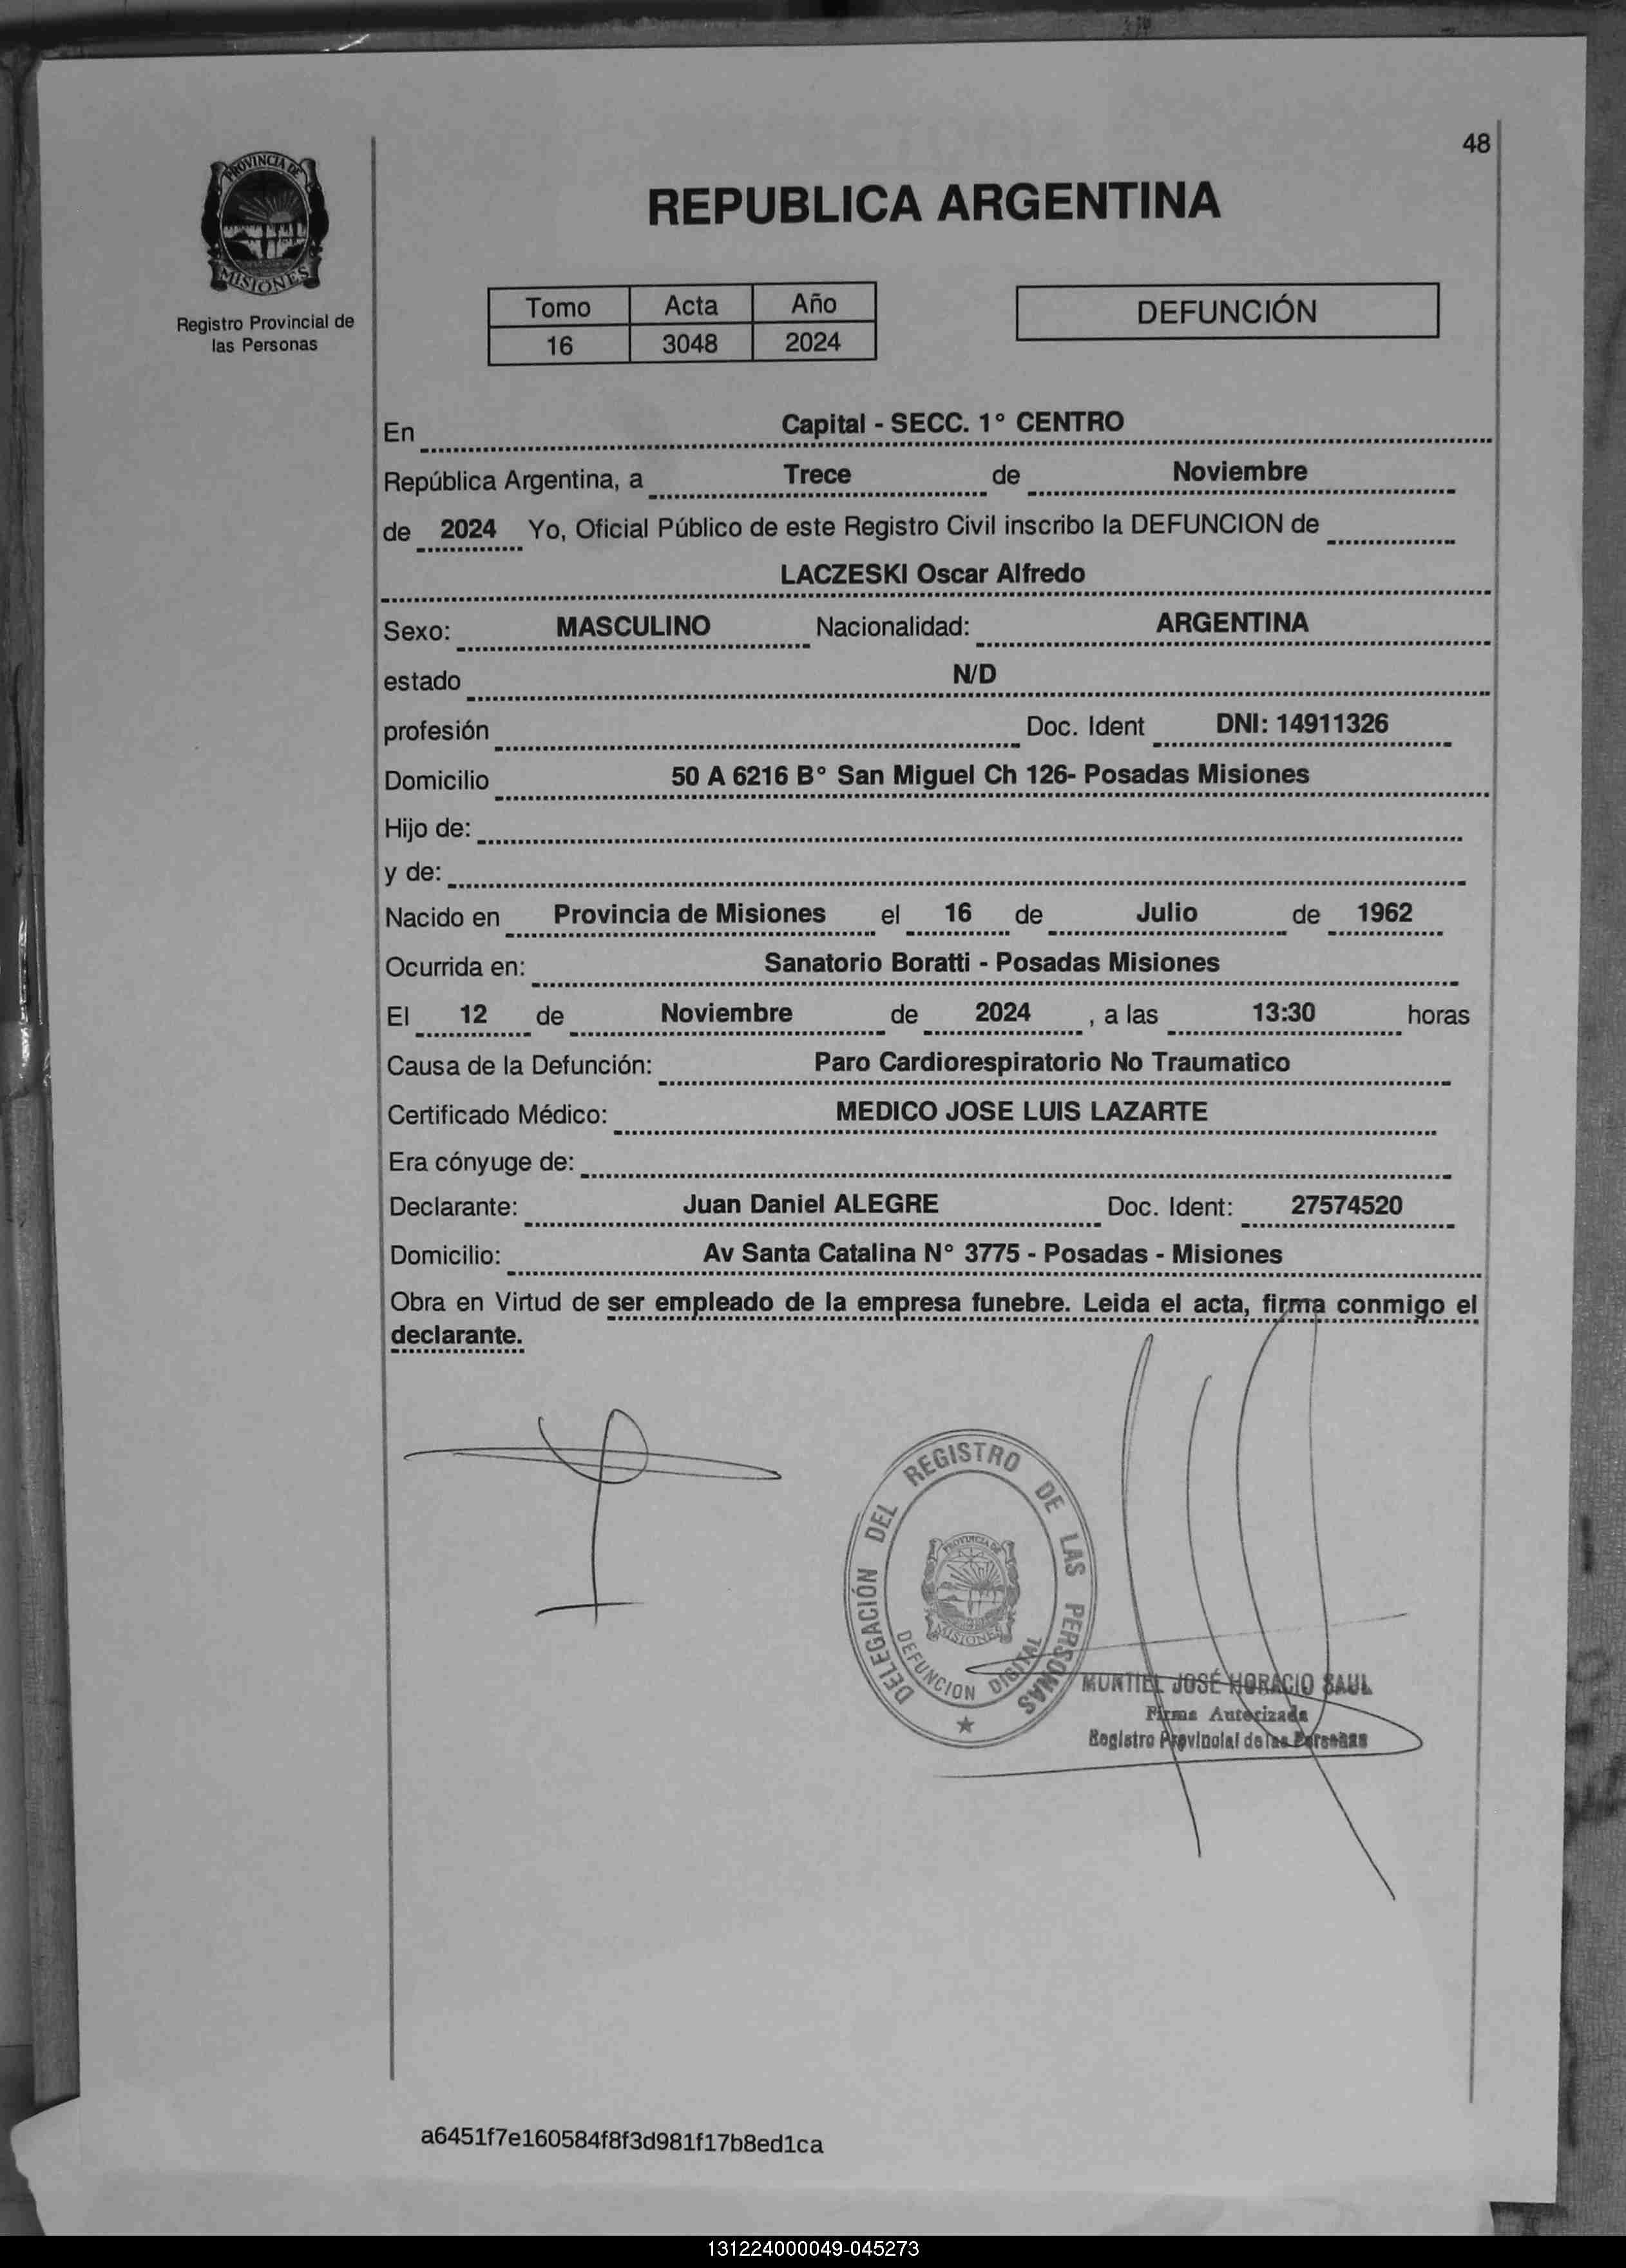 48
PROVINCIA DE
MISIONES
Registro Provincial de
las Personas
REPUBLICA ARGENTINA
Tomo Acta Año
16 3048 2024
DEFUNCIÓN
En Capital - SECC. 1° CENTRO
República Argentina, a Trece de Noviembre
de 2024 Yo, Oficial Público de este Registro Civil inscribo la DEFUNCION de
LACZESKI Oscar Alfredo
Sexo: MASCULINO Nacionalidad: ARGENTINA
estado N/D
profesión Doc. Ident DNI: 14911326
Domicilio 50 A 6216 B° San Miguel Ch 126- Posadas Misiones
Hijo de:
y de:
Nacido en Provincia de Misiones el 16 de Julio de 1962
Ocurrida en: Sanatorio Boratti - Posadas Misiones
El 12 de Noviembre de 2024 , a las 13:30 horas
Causa de la Defunción: Paro Cardiorespiratorio No Traumatico
Certificado Médico: MEDICO JOSE LUIS LAZARTE
Era cónyuge de:
Declarante: Juan Daniel ALEGRE Doc. Ident: 27574520
Domicilio: Av Santa Catalina N° 3775 - Posadas - Misiones
Obra en Virtud de ser empleado de la empresa funebre. Leida el acta, firma conmigo el
declarante.
DELEGACIÓN DEL REGISTRO DE LAS PERSONAS
PROVINCIA DE
MISIONES
DEFUNCION DIGITAL
MONTIEL JOSÉ HORACIO SAUL
Firma Autorizada
Registro Provincial de las Personas
a6451f7e160584f8f3d981f17b8ed1ca
131224000049-045273